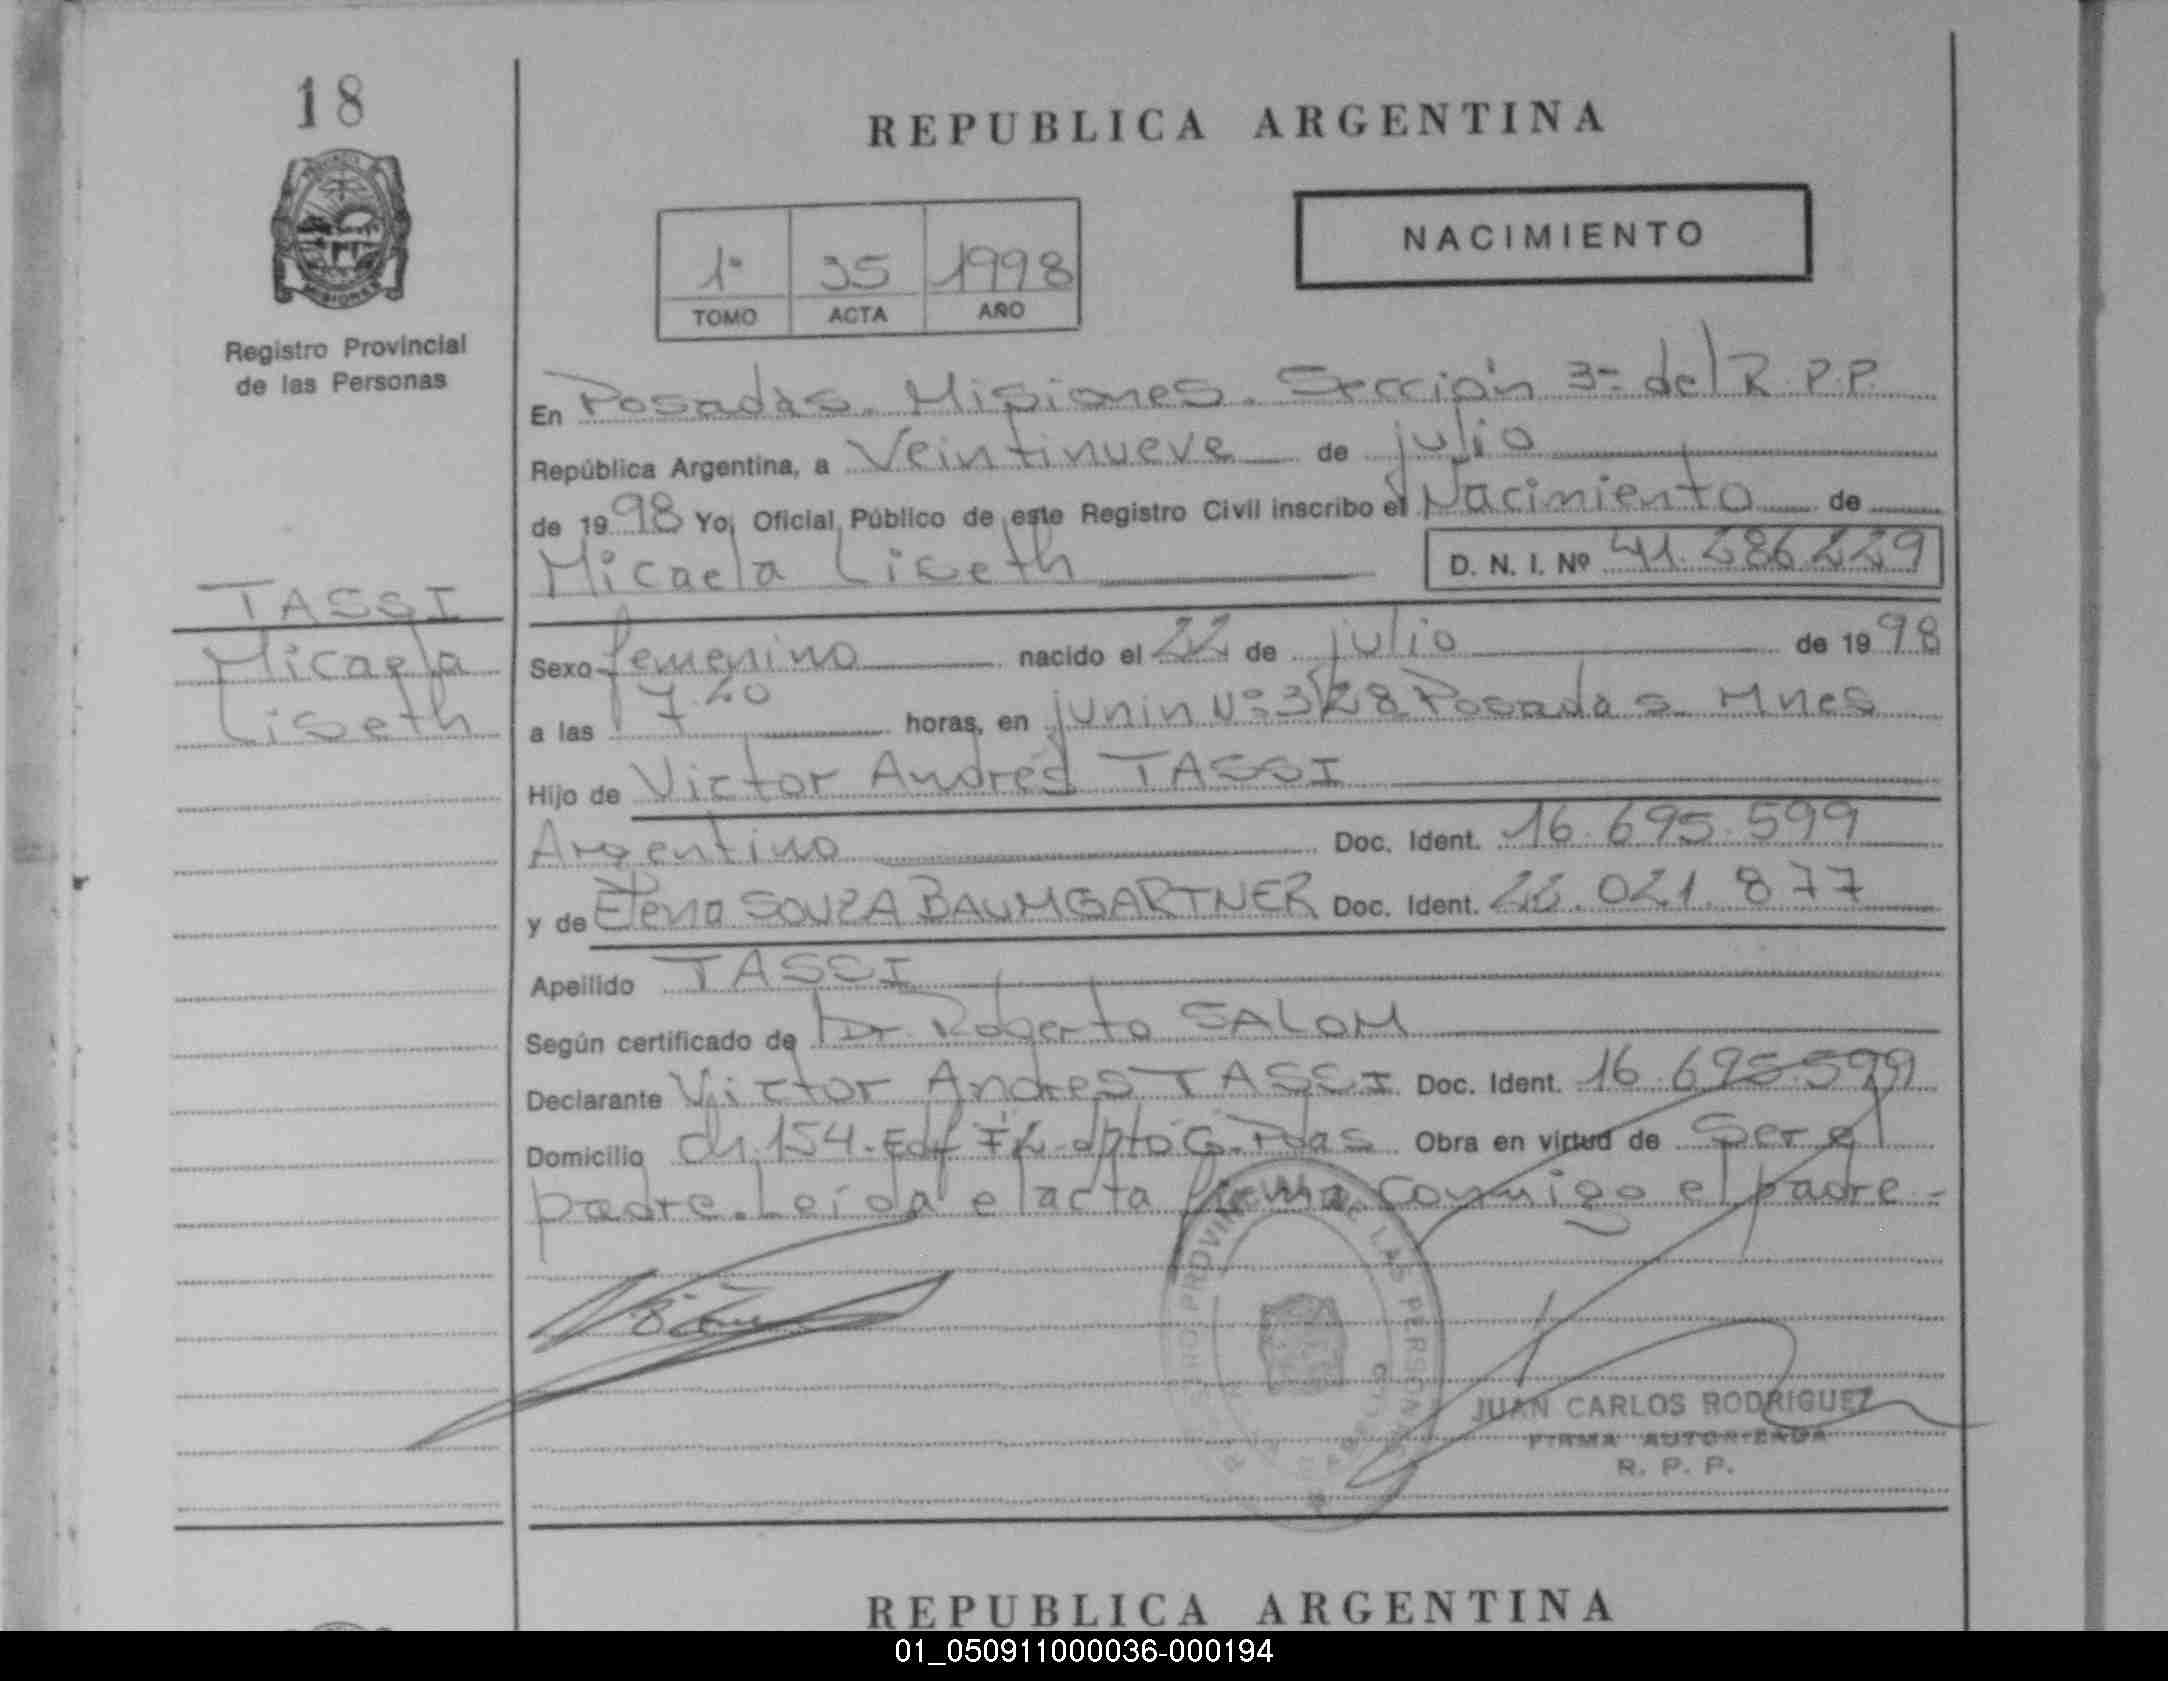 18
REPUBLICA ARGENTINA
Registro Provincial
de las Personas
1° 35 1998
TOMO ACTA AÑO
NACIMIENTO
En Posadas. Misiones. Sección 3- del R.P.P.
República Argentina, a Veintinueve de julio
de 1998 Yo, Oficial Público de este Registro Civil inscribo el Nacimiento de
Micaela Liseth D. N. I. Nº 41.286.229
TASSI
Micaela
Liseth
Sexo femenino nacido el 22 de julio de 1998
a las 7.20 horas, en junin Nº 3128 Posadas. Mnes
Hijo de Victor Andrés TASSI
Argentino Doc. Ident. 16.695.599
y de Elena SOUZA BAUMGARTNER Doc. Ident. 22.021.877
Apellido TASSI
Según certificado de Dr Roberto SALOM
Declarante Victor Andres TASSI Doc. Ident. 16.695.599
Domicilio ch. 154. Edf dpto G. Pdas Obra en virtud de Ser el
padre. Leida el acta firma conmigo el padre -
PROVINCIAL DE LAS PERSONAS
JUAN CARLOS RODRIGUEZ
FIRMA AUTORIZADA
R. P. P.
REPUBLICA ARGENTINA
01_050911000036-000194